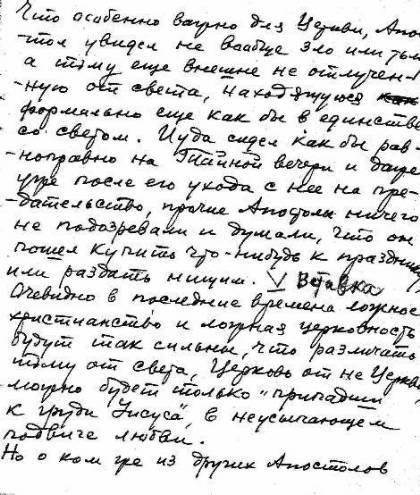 Что особенно важно для Церкви, Апо-
тол увидел не вообще зло или тьм
а тьму еще внешне не отлучен-
-ную от света, находящуюся
формально еще как бы в единстве
со светом. Иуда сидел как бы рав-
-ноправно на Тайной вечери и даже
уже после его ухода с нее на пре-
-дательство, прочие Апостолы ничего
не подозревали и думали, что он
пошел купить что-нибудь к праздни
или раздать нищим. V Вставка
Очевидно в последние времена ложное
христианство и ложная церковность
будут так сильны, что различать
тьму от света, Церковь от не Церкв
можно будет только "припадши
к груди Иисуса", в неусыпающем
подвиге любви.
Но о ком же из других Апостолов